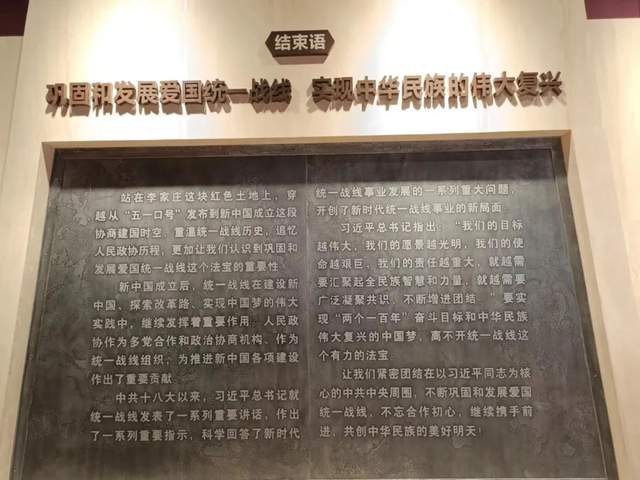 结束语
巩固和发展爱国统一战线 实现中华民族的伟大复兴
站在李家庄这块红色土地上，穿
越从“五一口号”发布到新中国成立这段
协商建国时空，重温统一战线历史，追忆
人民政协历程，更加让我们认识到巩固和
发展爱国统一战线这个法宝的重要性。
新中国成立后，统一战线在建设新
中国、探索改革路、实现中国梦的伟大
实践中，继续发挥着重要作用。人民政
协作为多党合作和政治协商机构、作为
统一战线组织，为推进新中国各项建设
作出了重要贡献。
中共十八大以来，习近平总书记就
统一战线发表了一系列重要讲话，作出
了一系列重要指示，科学回答了新时代
统一战线事业发展的一系列重大问题，
开创了新时代统一战线事业的新局面。
习近平总书记指出：“我们的目标
越伟大，我们的愿景越光明，我们的使
命越艰巨，我们的责任越重大，就越需
要汇聚起全民族智慧和力量，就越需要
广泛凝聚共识、不断增进团结。”要实
现“两个一百年”奋斗目标和中华民族
伟大复兴的中国梦，离不开统一战线这
个有力的法宝。
让我们紧密团结在以习近平同志为核
心的中共中央周围，不断巩固和发展爱国
统一战线，不忘合作初心，继续携手前
进，共创中华民族的美好明天！